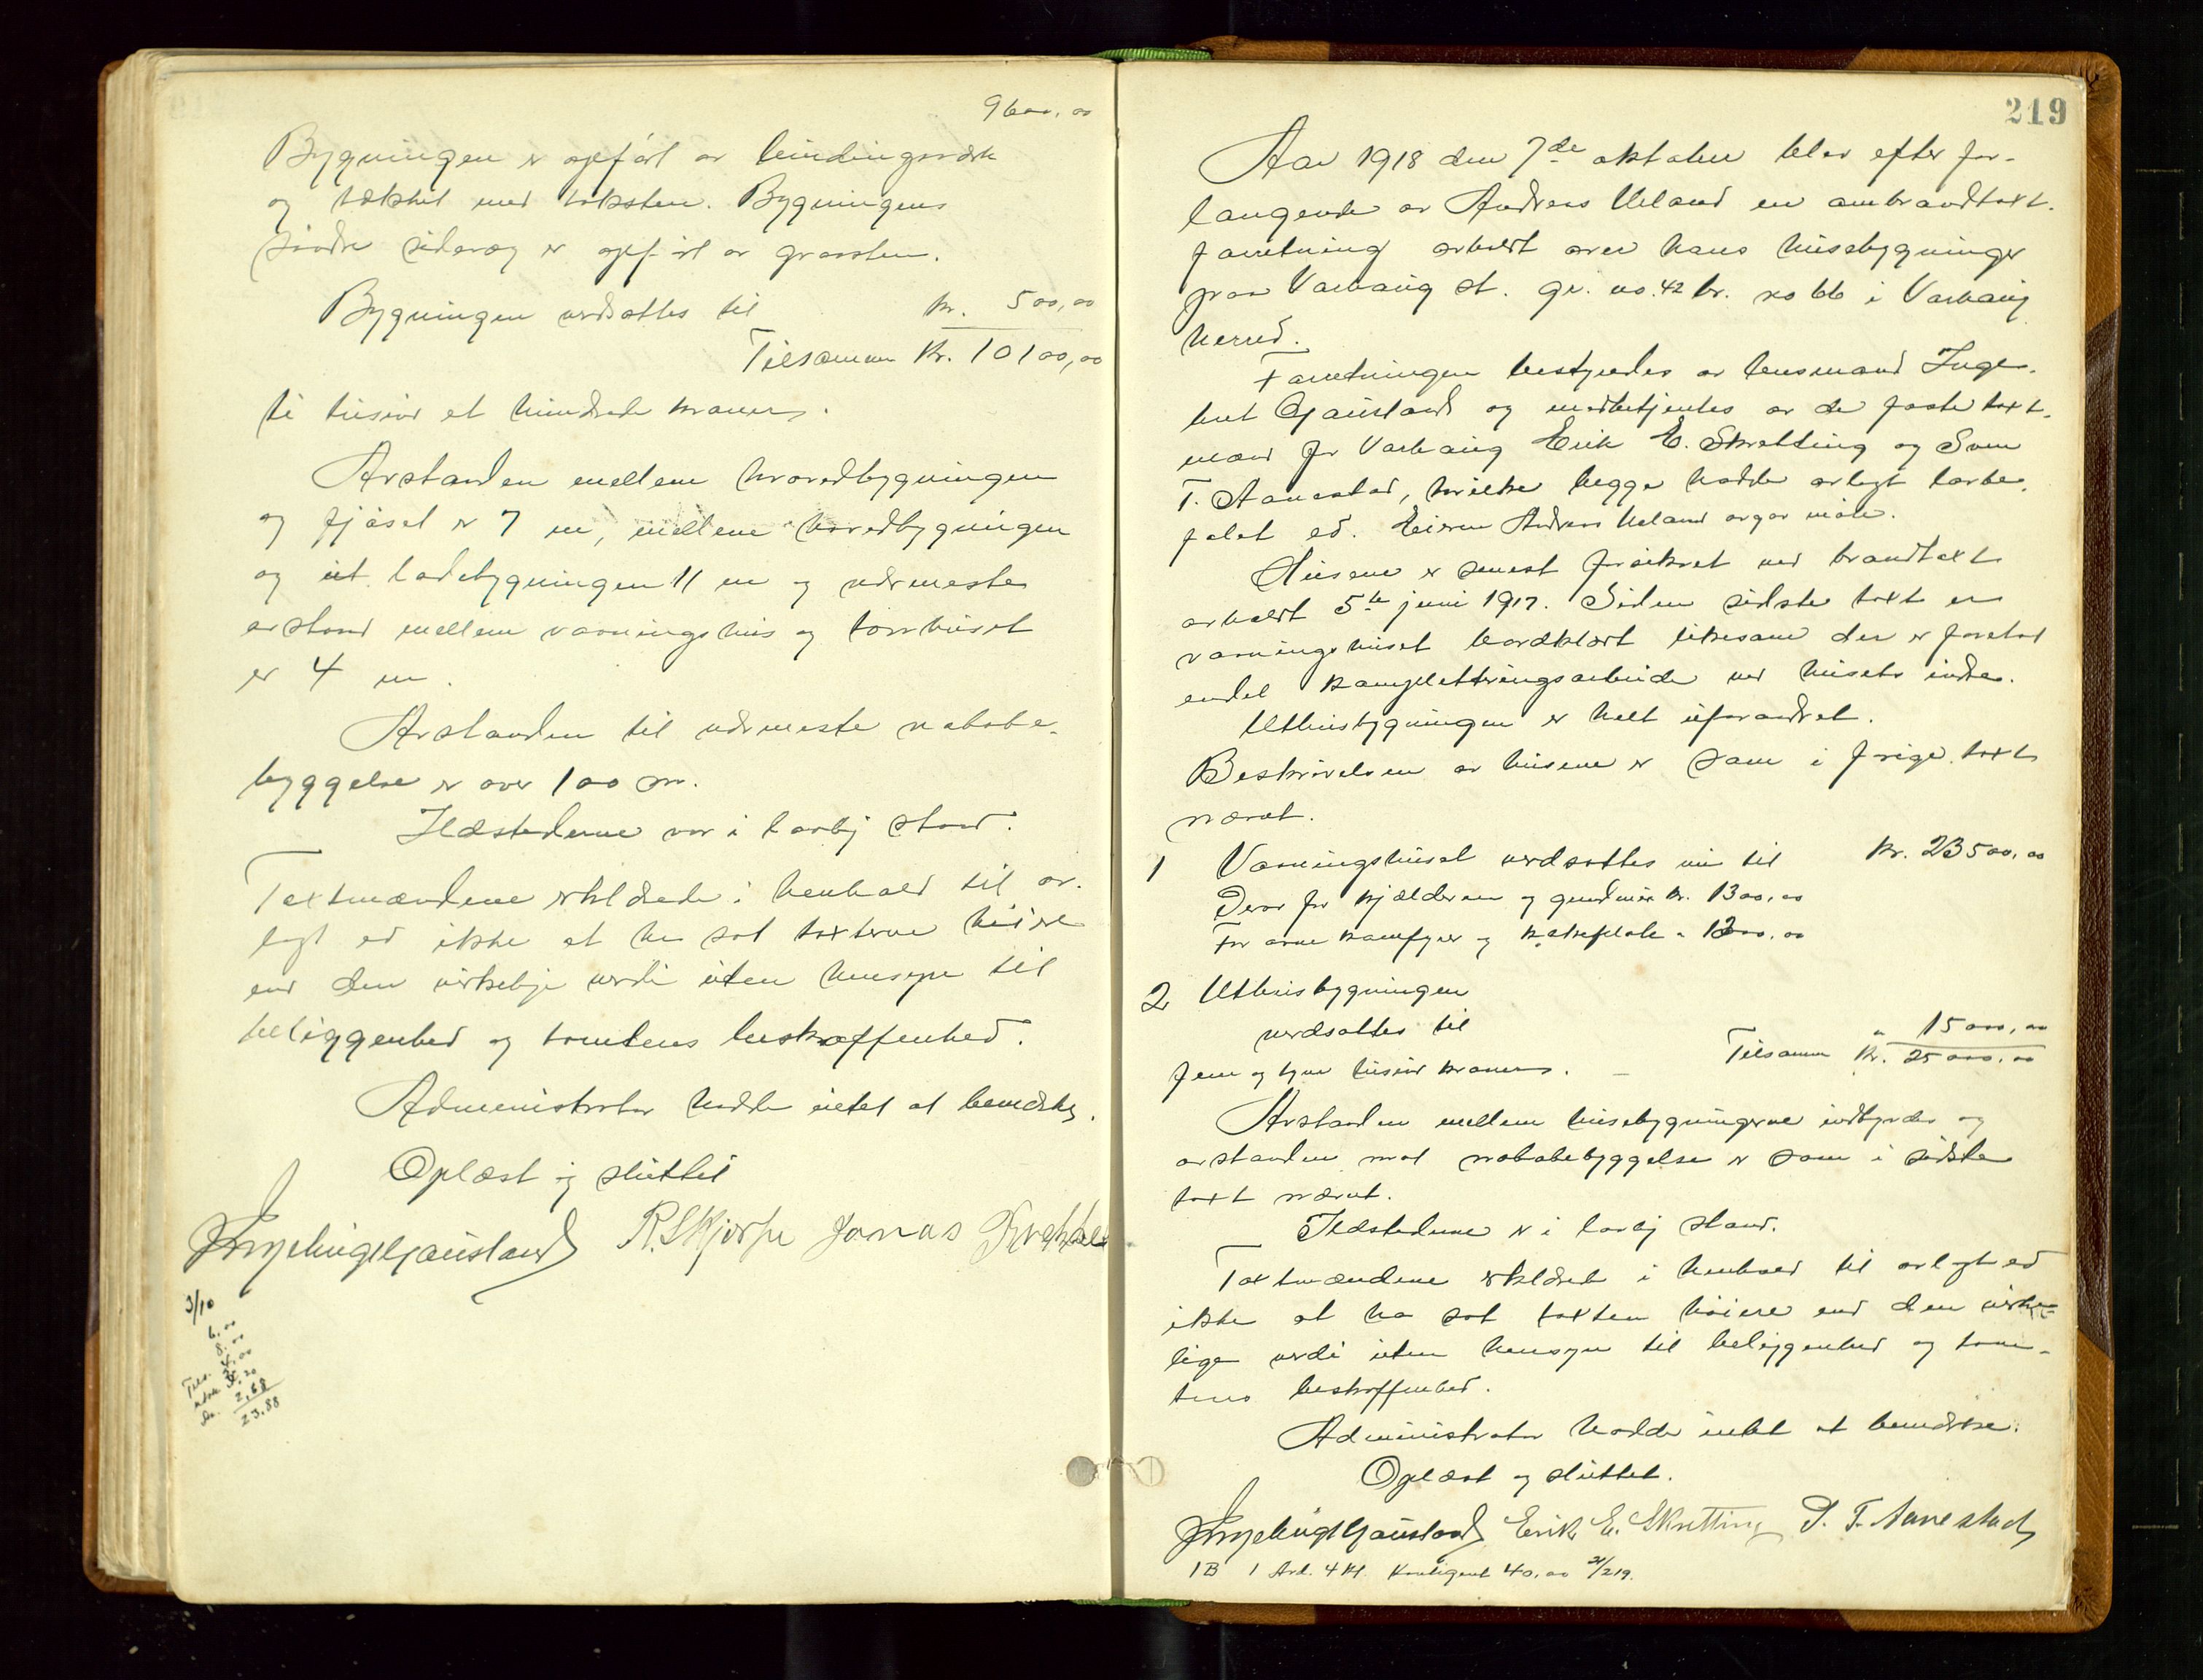 9600,00
Bygningen er opført av bindingsverk
og tækket med taksten. Bygningens
søndre sidevæg er opført av graasten.
Bygningen verdsættes til kr. 500,00
Tilsammen Kr. 10100,00
ti tusind et hundrede kroner.
Avstanden mellem hovedbygningen
og fjøset er 7 m, mellem hovedbygningen
og ut. ladebygningen 11 m og nærmeste
avstand mellem vaaningshus og tørvhuset
er 4 m.
Avstanden til nærmeste nabobe-
byggelse er over 100 m.
Ildstederne var i lovlig stand.
Taxtmændene erklærede i henhold til av-
lagt ed ikke at ha sat taxterne høiere
end den virkelige verdi uten hensyn til
beliggenhed og tomtens beskaffenhed.
Administrator hadde intet at bemærke.
Oplæst og sluttet
Ingebrigt Gausland R. Skjærpe Jonas
3/10
6.00
8.00
4.00
2,68
23,88
219
Aar 1918 den 7de oktober blev efter for-
langende av Andreas Ueland en ombrandtaxt-
forretning avholdt over hans husebygninger
paa Varhaug st. gr. no. 42 br. no 66 i Varhaug
herred.
Forretningen bestyredes av lensmand Inge-
bret Gausland og medbetjentes av de faste taxt-
mænd for Varhaug Erik E. Skretting og Sven
T. Aanestad, hvilke begge hadde avlagt lovbe-
falet ed. Eieren Andreas Ueland avgav møte.
Husene er senest forsikret ved brandtaxt
avholdt 5te juni 1917. Siden sidste taxt er
vaaningshuset bordklædt likesom der er foretat
endel kompletteringsarbeide ved husets indre.
Uthusbygningen er helt uforandret.
Beskrivelsen av husene er som i forrige taxt
nævnt.
1 Vaaningshuset verdsættes nu til Kr. 23500,00
Derav for kjælderen og grundmur kr. 1300,00
For ovne komfyr og kokeplate " 1200,00
2 Uthusbygningen
verdsættes til " 1500,00
Tilsammen Kr. 25000,00
fem og tyve tusind kroner. –
Avstanden mellem husebygningerne indbyrdes og
avstanden mot nabobebyggelse er som i sidste
taxt nævnt.
Ildstederne er i lovlig stand.
Taxtmændene erklæret i henhold til avlagt ed
ikke at ha sat taxten høiere end den virke-
lige verdi uten hensyn til beliggenhed og tom-
tens beskaffenhed.
Administrator hadde intet at bemærke.
Oplæst og sluttet.
Ingebrigt Gausland Erik E. Skretting S. T. Aanestad
1B 1 Avd. 4 Kl. Kontigent 40,00 21/219.